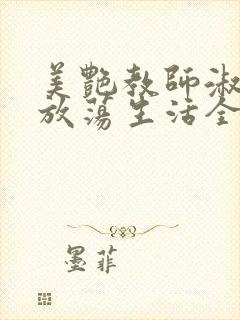 美艷教師淑
放蕩生活全
墨菲